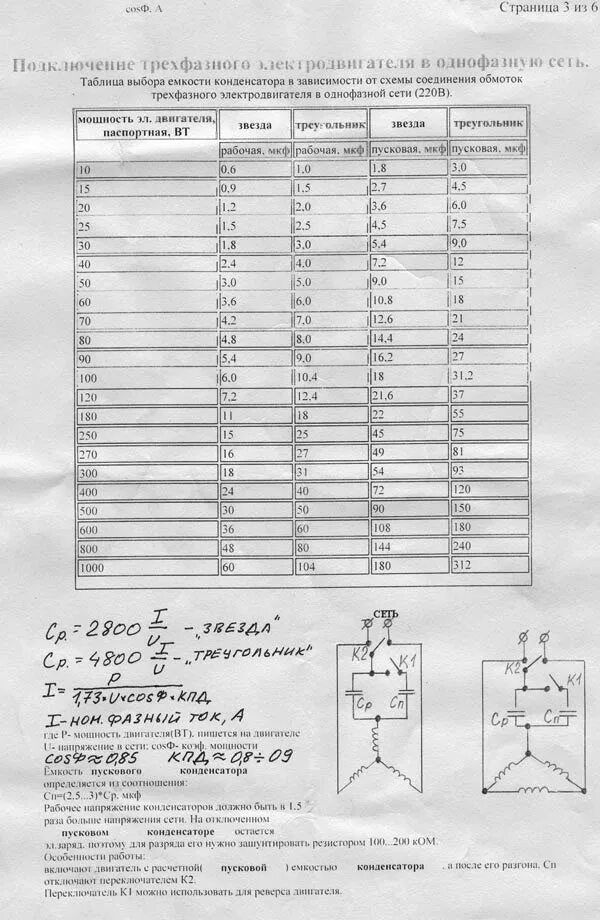 cosФ. А
Страница 3 из 6
Подключение трехфазного электродвигателя в однофазную сеть.
Таблица выбора емкости конденсатора в зависимости от схемы соединения обмоток
трехфазного электродвигателя в однофазной сети (220В).
мощность эл. двигателя, паспортная, ВТ звезда треугольник звезда треугольник
рабочая, мкф рабочая, мкф пусковая, мкф пусковая, мкф
10 0,6 1,0 1,8 3,0
15 0,9 1,5 2,7 4,5
20 1,2 2,0 3,6 6,0
25 1,5 2,5 4,5 7,5
30 1,8 3,0 5,4 9,0
40 2,4 4,0 7,2 12
50 3,0 5,0 9,0 15
60 3,6 6,0 10,8 18
70 4,2 7,0 12,6 21
80 4,8 8,0 14,4 24
90 5,4 9,0 16,2 27
100 6,0 10,4 18 31,2
120 7,2 12,4 21,6 37
180 11 18 22 55
250 15 25 45 75
270 16 27 49 81
300 18 31 54 93
400 24 40 72 120
500 30 50 90 150
600 36 60 108 180
800 48 80 144 240
1000 60 104 180 312
Ср.=2800 I/U - „ЗВЕЗДА"
Ср.=4800 I/U - „ТРЕУГОЛЬНИК"
I= P/1,73·U×cosФ×КПД
I-НОМ. ФАЗНЫЙ ТОК, А
где P- мощность двигателя(ВТ). пишется на двигателе
U- напряжение в сети; cosФ- коэф. мощности
cosФ≈0,85 КПД≈0,8÷09
Ёмкость пускового конденсатора
определяется из соотношения:
Сп=(2.5...3)*Ср. мкф
Рабочее напряжение конденсаторов должно быть в 1.5
раза больше напряжения сети. На отключенном
пусковом конденсаторе остается
эл.заряд. поэтому для разряда его нужно зашунтировать резистором 100...200 кОМ.
Особенности работы:
включают двигатель с расчетной( пусковой ) емкостью конденсатора . а после его разгона. Сп
отключают переключателем К2.
Переключатель К1 можно использовать для реверса двигателя.
СЕТЬ
К2
К1
Ср
Сп
К2
К1
Ср
Сп